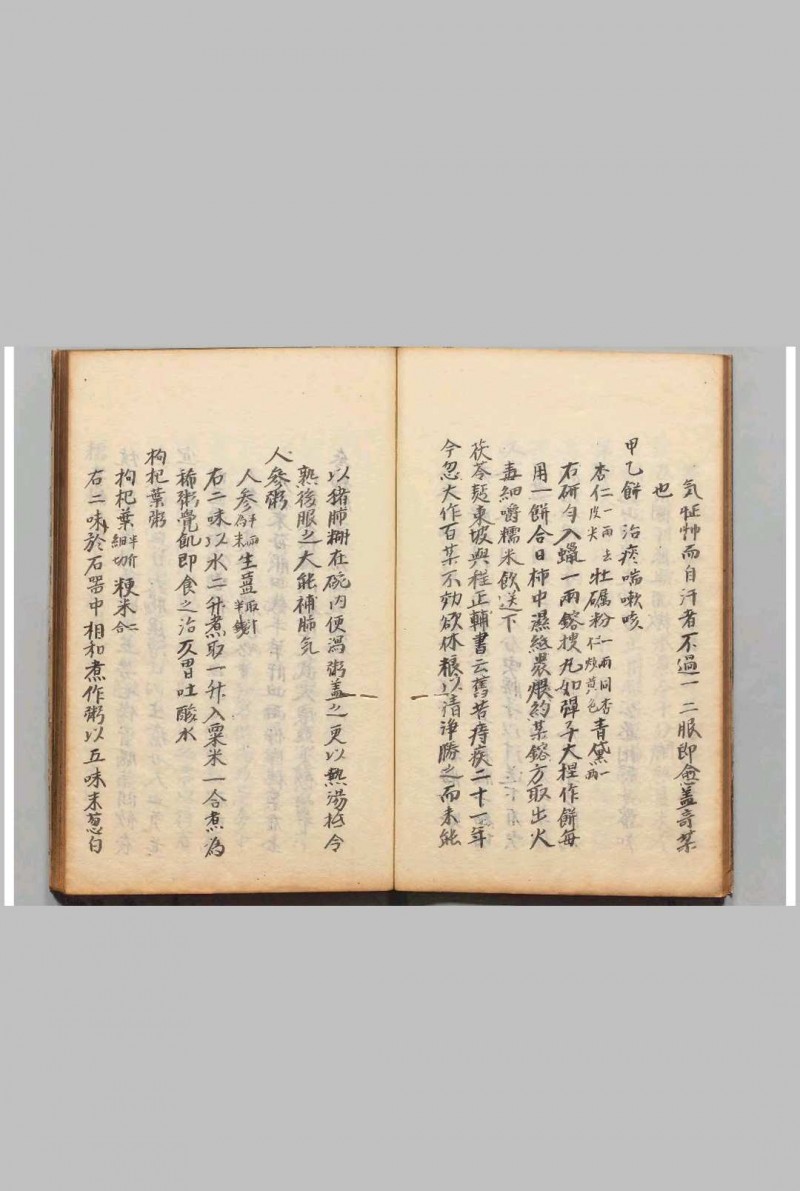 気怔忡而自汗者不過一二服即愈盖奇薬
也
甲乙餅 治痰喘嗽咳
杏仁一両去皮尖牡礪粉一両同杏仁炒黄色青黛一両
右研匀入蠟一両鎔搜丸如弾子大捏作餅毎
用一餅合日柿中濕紙裹煨約薬鎔方取出火
毒細嚼糯米飲送下
茯苓麨東坡與程正輔書云舊苦痔疾二十一年
今忽大作百薬不効欲休粮以清浄勝之而未能
以猪肺糊在碗内便瀉粥盖之更以熱湯抵令
熟後服之大能補肺気
人參粥
人參半両為末生薑取汁半錢
右二味以水二升煮取一升入粟米一合煮為
稀粥覺飢即食之治反胃吐酸水
枸杞葉粥
枸杞葉半斤細切粳米二合
右二味於石器中相和煮作粥以五味末葱白